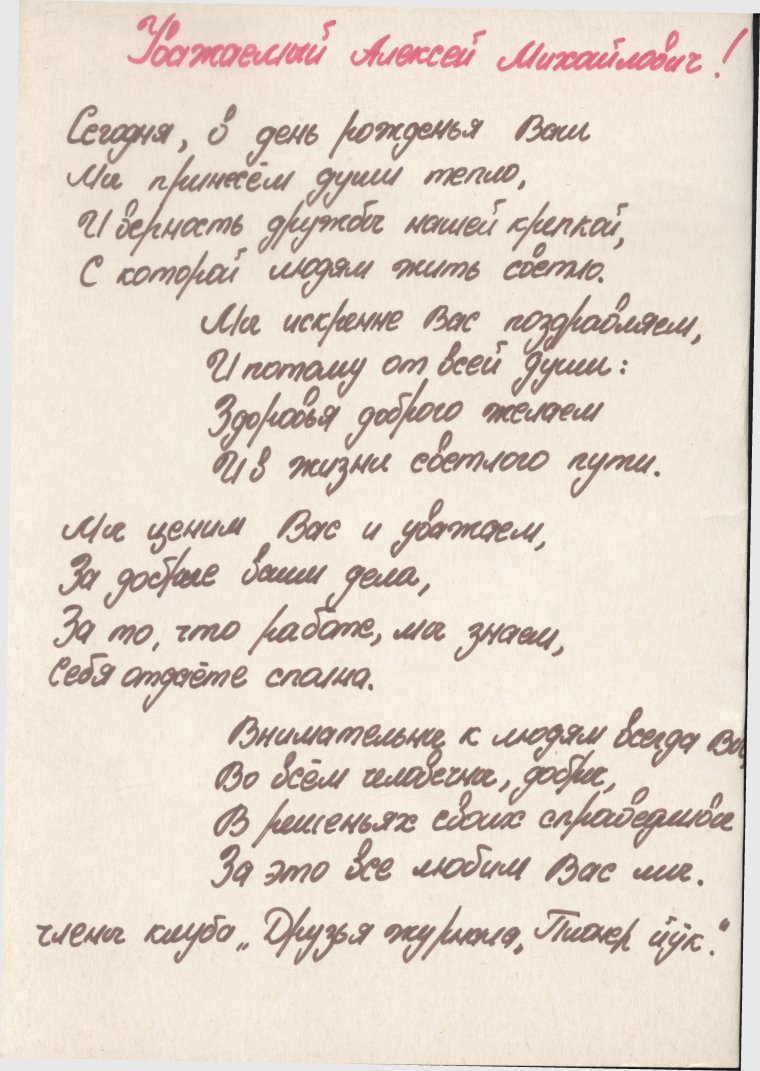 Уважаемый Алексей Михайлович!
Сегодня, в день рожденья Ваш
Мы принесём души тепло,
И верность дружбы нашей крепкой,
С которой людям жить светло.
Мы искренне Вас поздравляем,
И потому от всей души:
Здоровья доброго желаем
И в жизни светлого пути.
Мы ценим Вас и уважаем,
За добрые ваши дела,
За то, что работе, мы знаем,
Себя отдаёте сполна.
Внимательны к людям всегда Вы,
Во всём человечны, добры,
В решеньях своих справедливы
За это все любим Вас мы.
члены клуба „Друзья журнала „Пионер йÿк".